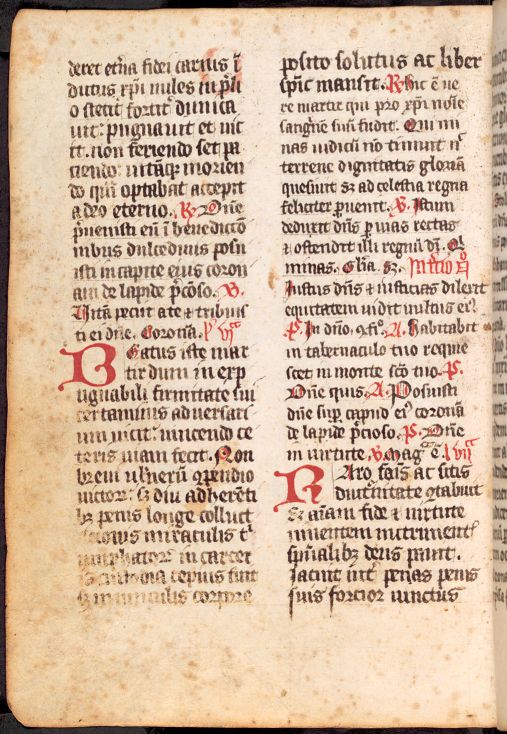 deret et̄na fidei carius ī
ductus xp̄i miles in p̄li
o stetit fortit͛ dimica
uit: pugnauit et uic
it. non feriendo set pa
ciendo uitāq̄ morien
do quā optabat accepit
a deo eterno. R. Dn̄e
p̄uenisti eū ī bened
nibus dulcedinis posu
isti in capite eius coron
am de lapide p̄cōso. V.
Vitā peciit a te et tribuis
ti ei dn̄e. Coronā.
Beatus iste mar
tir dum in exp
ugnabili firmitate sui
certaminis aduersari
um uicit: uincendo ce
teris uiam fecit. Non
breui ulnerū
uictor: sȝ diu adherēti
bȝ penis longe colluct
miraculis
in carcer
sepius fuit
sȝ in uinculis corpore
posito solutus ac liber
sp̄c mansit. R. Hic ē ue
re martir qui pro xp̄i noīe
sanguinē suū fudit. Qui mi
nas iudicū nō timuit n͛
terrene dignitatis gloriā
quesiuit sȝ ad celestia regna
feliciter p̄uenit. V. Istum
deduxit dn̄s p̄ uias rectas
et ostendit illi regnū dī. Q
minas. Gl̄ia. sȝ.
Iustus dn̄s et iusticias dilexit
equitatem uidit uultus ei͛.
P. In dn̄o. A. Habitabit
in tabernaculo tuo requie
scet in monte scō tuo. P.
Dn̄e quis. A. Posuisti
dn̄e sup͛ caput ei͛ coronā
de lapide p̄cioso. P. Dn̄e
in uirtute. V. Mag̅ ē.
Raro fa͞is ac sitis
diut͛nitate ꝯtabuit
Sȝ aīam fide et uirtute
inuentem nutriment͛
sp̄ualibȝ deus pauit.
Iacuit int͛ penas penis
suis forcior iunctus